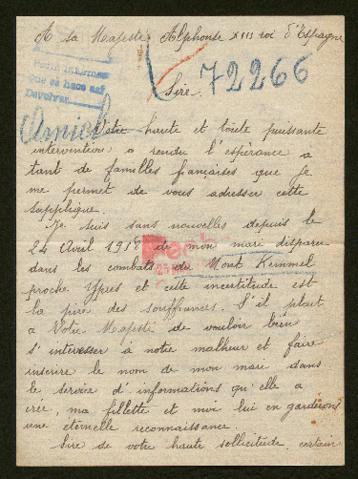 A sa Majesté Alphonse XIII roi d'Espagne
Sire
72266
Amiel
Votre haute et toute puissante
intervention a rendu l'espérance a
tant de familles françaises que je
me permet de vous adresser cette
supplique.
Je suis sans nouvelles depuis le
24 Avril 1918 de mon mari disparu
dans les combats du Mont Kemmel
proche Ypres et cette incertitude est
la pire des souffrances. S'il plait
a Votre Majesté de vouloir bien
s'interesser à notre malheur et faire
inscrire le nom de mon mari dans
le service d'informations qu'elle a
crée, ma fillette et moi lui en garderons
une eternelle reconnaissance.
Sire de votre haute sollicitude certain